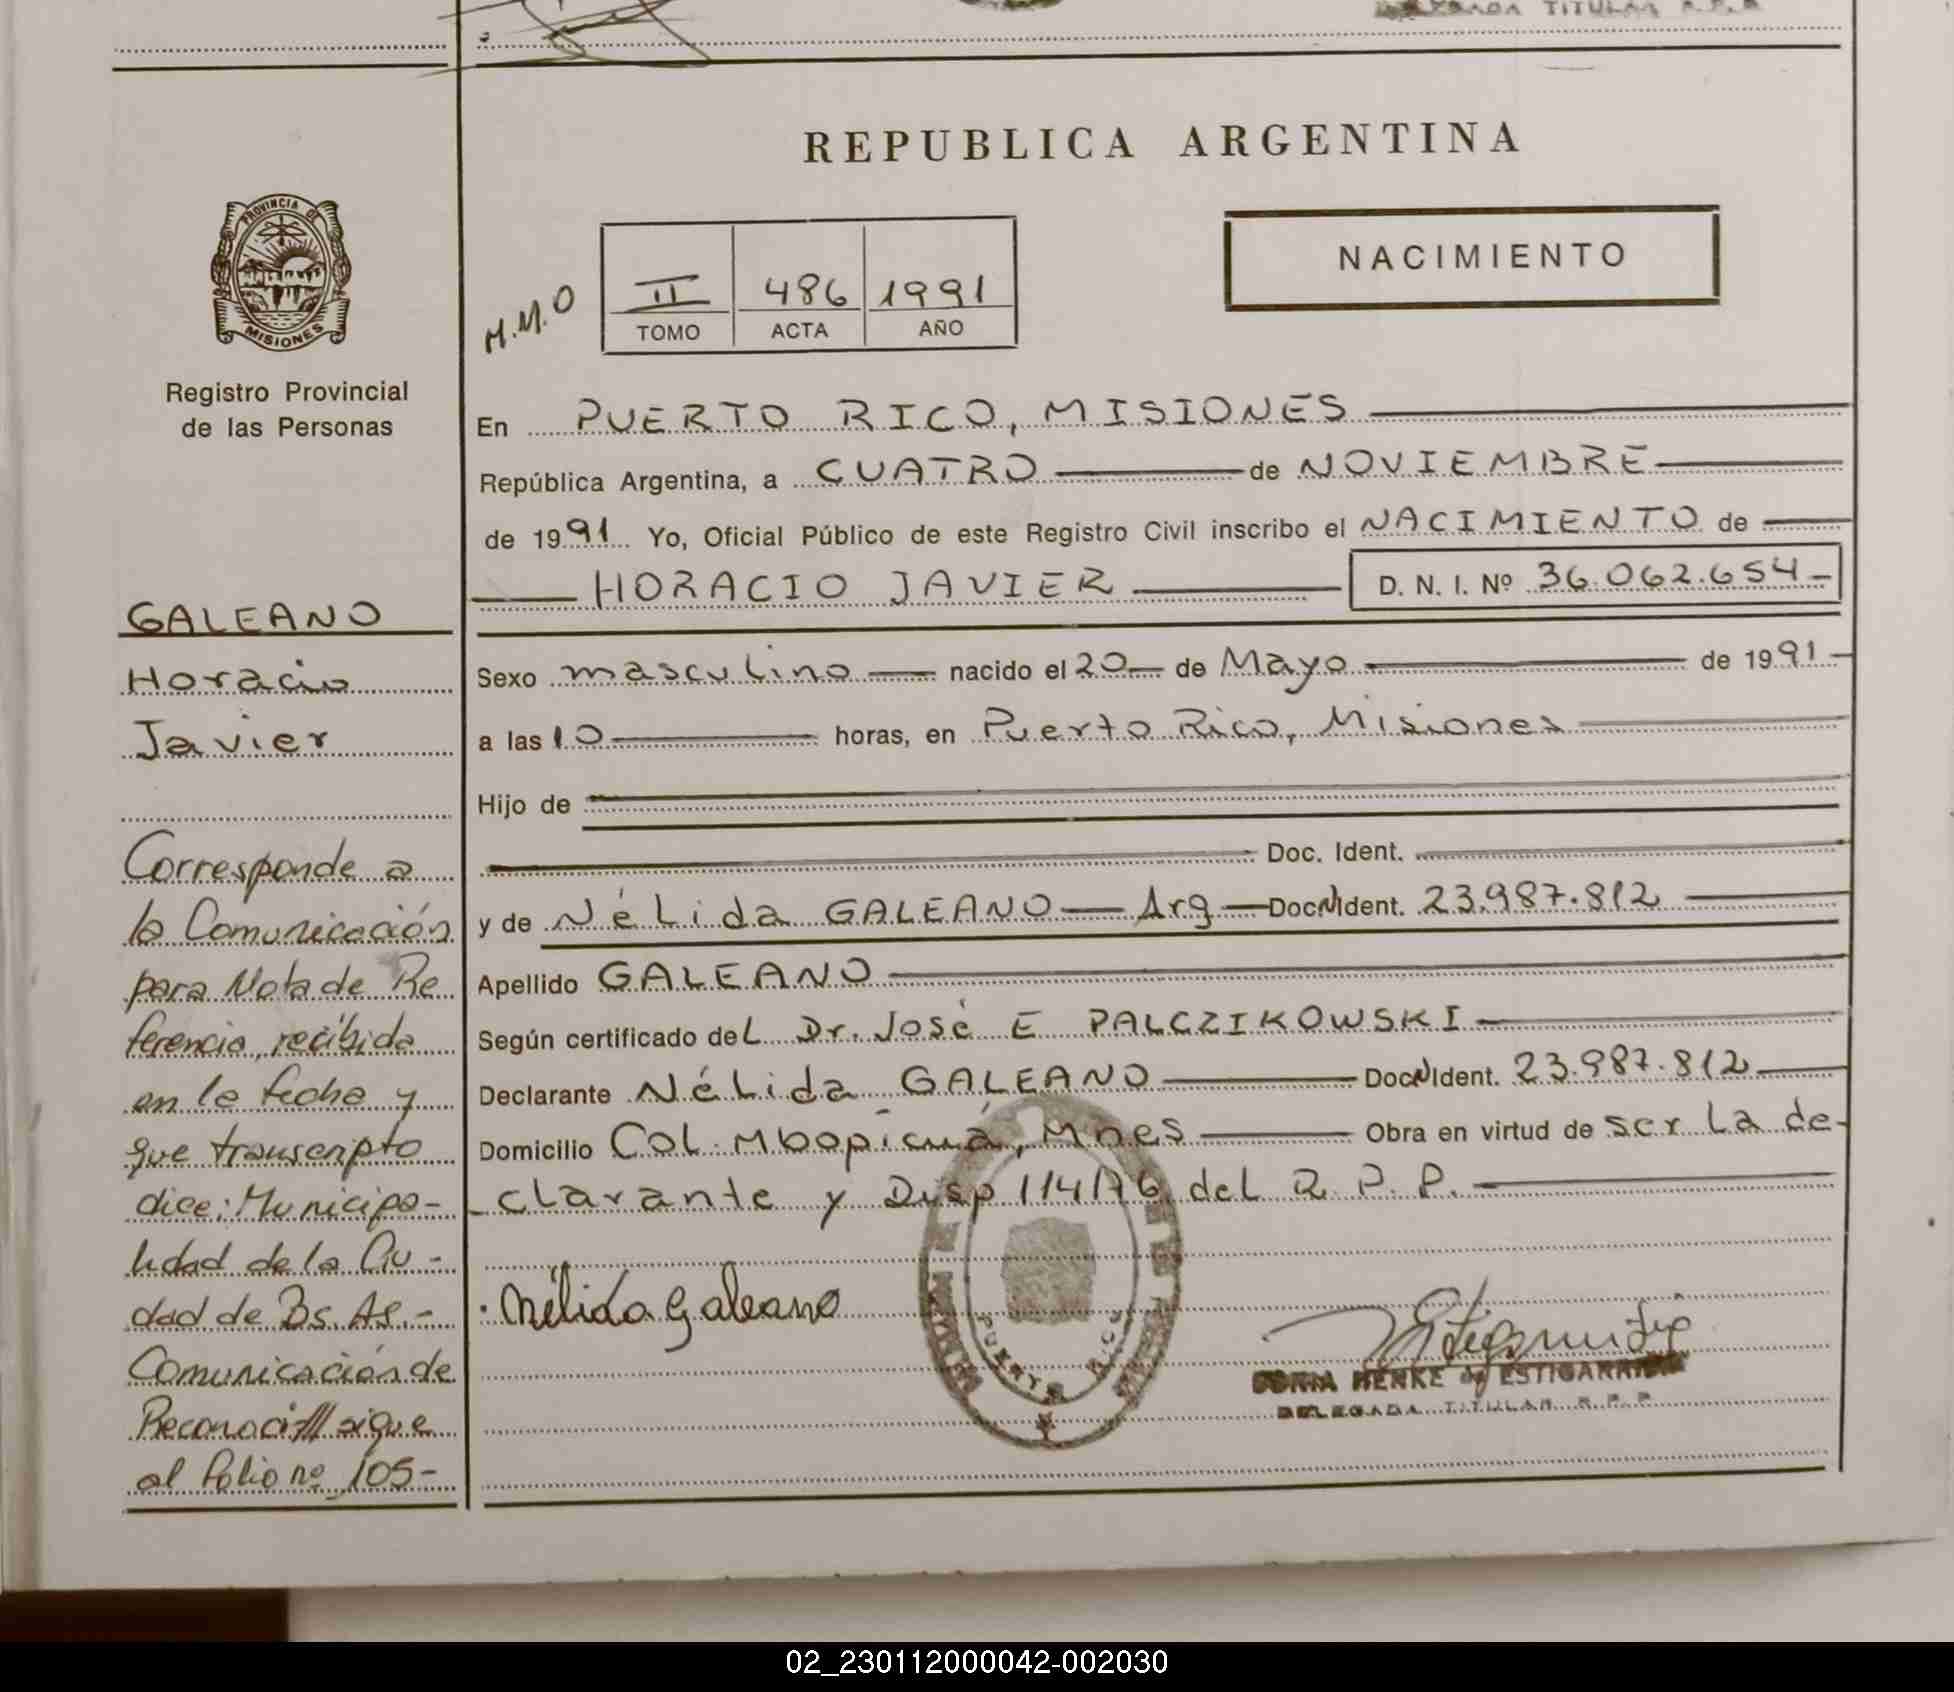 TITULAR R.P.P.
REPUBLICA ARGENTINA
NACIMIENTO
PROVINCIA DE
MISIONES
Registro Provincial
de las Personas
M.M.O
II 486 1991
TOMO ACTA AÑO
En PUERTO RICO, MISIONES
República Argentina, a CUATRO de NOVIEMBRE
de 1991 Yo, Oficial Público de este Registro Civil inscribo el NACIMIENTO de
HORACIO JAVIER D. N. I. Nº 36.062.654
Sexo masculino nacido el 20 de Mayo de 1991
a las 10 horas, en Puerto Rico, Misiones
Hijo de
Doc. Ident.
y de Nélida GALEANO Arg Doc N Ident. 23.987.812
Apellido GALEANO
Según certificado del Dr. José E PALCZIKOWSKI
Declarante Nélida GALEANO Doc N Ident. 23.987.812
Domicilio Col. Mbopicuá, Mnes Obra en virtud de ser la de-
clarante y Disp 114/76 del R. P. P.
Nélida Galeano
HENKE de ESTIGARRIBIA
DELEGADA TITULAR R.P.P.
PUERTO RICO
GALEANO
Horacio
Javier
Corresponde a
la Comunicación
para Nota de Re
ferencia, recibida
en la fecha y
que transcripto
dice: Municipa-
lidad de la Ciu-
dad de Bs. As.-
Comunicación de
Reconoci/// sigue
al folio nº 105-
02_230112000042-002030